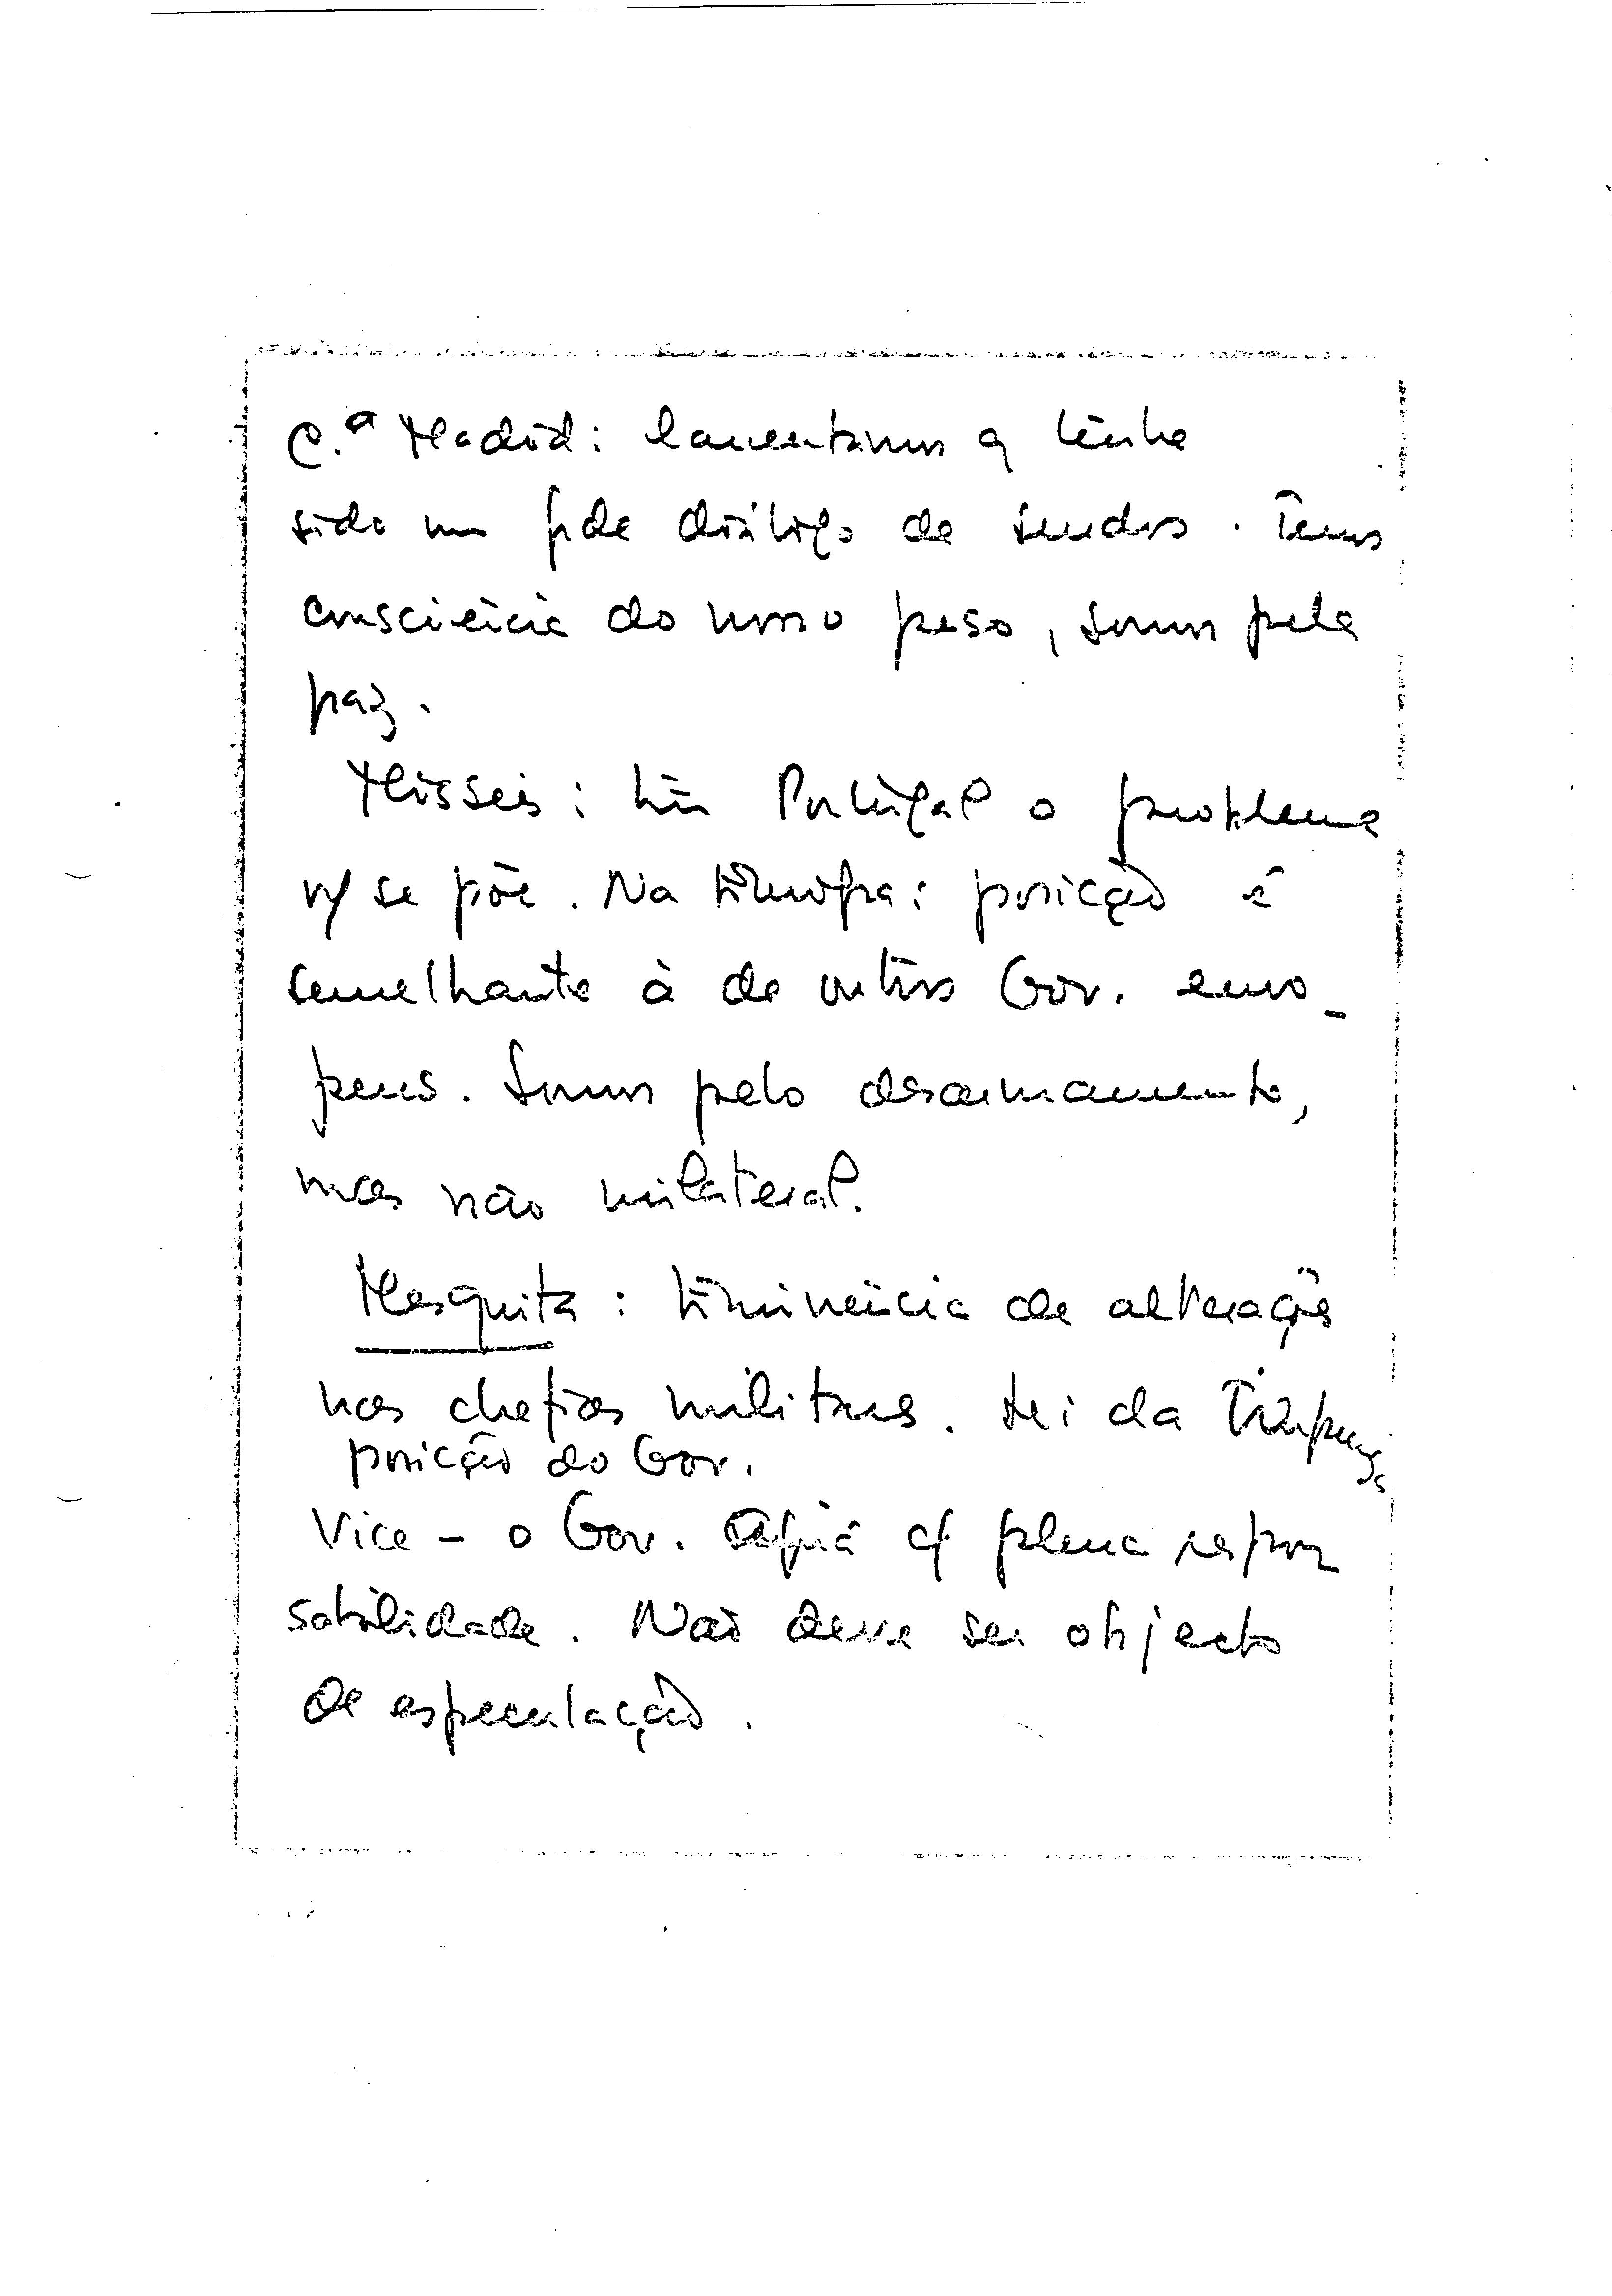 C.ª Madrid: lamentamos q tenha
sido um gde diálogo de surdos. Temos
consciência do nosso peso, somos pela
paz.
Mísseis: Em Portugal o problema
ñ/ se põe. Na Europa: posição é
semelhante à de outros Gov. euro-
peus. Somos pelo desarmamento,
mas não unilateral.
Mesquita: Eminência de alterações
nas chefias militares. Lei da
posição do Gov.
Vice - o Gov. Agirá c/ plena respon
sabilidade. Não deve ser objecto
de especulação.